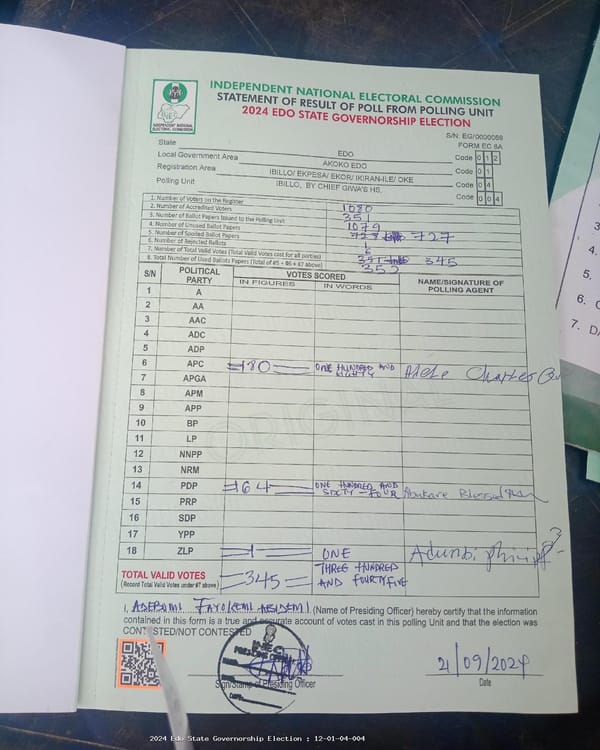 INDEPENDENT NATIONAL ELECTORAL COMMISSION
STATEMENT OF RESULT OF POLL FROM POLLING UNIT
2024 EDO STATE GOVERNORSHIP ELECTION
INEC
INDEPENDENT NATIONAL ELECTORAL COMMISSION
S/N: EG/0000059
FORM EC 8A
State EDO Code 0 1 2
Local Government Area AKOKO EDO Code 0 1
Registration Area IBILLO/ EKPESA/ EKOR/ IKIRAN-ILE/ OKE Code 0 4
Polling Unit IBILLO, BY CHIEF GIWA'S HS. Code 0 0 4
1. Number of Voters on the Register 1080
2. Number of Accredited Voters 351
3. Number of Ballot Papers Issued to the Polling Unit 1079
4. Number of Unused Ballot Papers 727
5. Number of Spoiled Ballot Papers 1
6. Number of Rejected Ballots
7. Number of Total Valid Votes (Total Valid Votes cast for all parties) 345
8. Total Number of Used Ballots Papers (Total of #5 + #6 + #7 above) 352
S/N POLITICAL PARTY VOTES SCORED NAME/SIGNATURE OF POLLING AGENT
IN FIGURES IN WORDS
1 A
2 AA
3 AAC
4 ADC
5 ADP
6 APC 180 ONE HUNDRED AND EIGHTY Charles
7 APGA
8 APM
9 APP
10 BP
11 LP
12 NNPP
13 NRM
14 PDP 164 ONE HUNDRED AND SIXTY-FOUR Blessed
15 PRP
16 SDP
17 YPP
18 ZLP 1 ONE
TOTAL VALID VOTES 345 THREE HUNDRED AND FOURTYFIVE
(Record Total Valid Votes under #7 above)
ORIGINAL
I, (Name of Presiding Officer) hereby certify that the information
contained in this form is a true and accurate account of votes cast in this polling Unit and that the election was
CONTESTED/NOT CONTESTED
INEC
PRESIDING OFFICER
21/09/2024
Sign/Stamp of Presiding Officer
Date
2024 Edo State Governorship Election : 12-01-04-004
4.
5.
6.
7. D